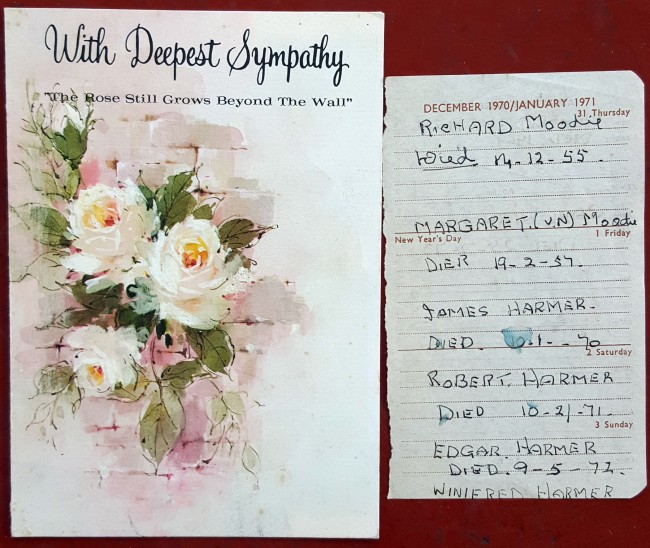 With Deepest Sympathy
"The Rose Still Grows Beyond The Wall"
DECEMBER 1970/JANUARY 1971
31 Thursday
RICHARD Moodie
Died 14-12-55.
MARGARET.(VN) Moodie
New Year's Day 1 Friday
DIED 19-2-57.
JAMES HARMER.
DIED. -1-70
2 Saturday
ROBERT. HARMER
DIED 10-2-71.
3 Sunday
EDGAR HARMER
DIED. 9-5-72.
WINIFRED HARMER